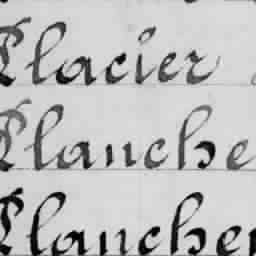 Placier
Planche
Plancher